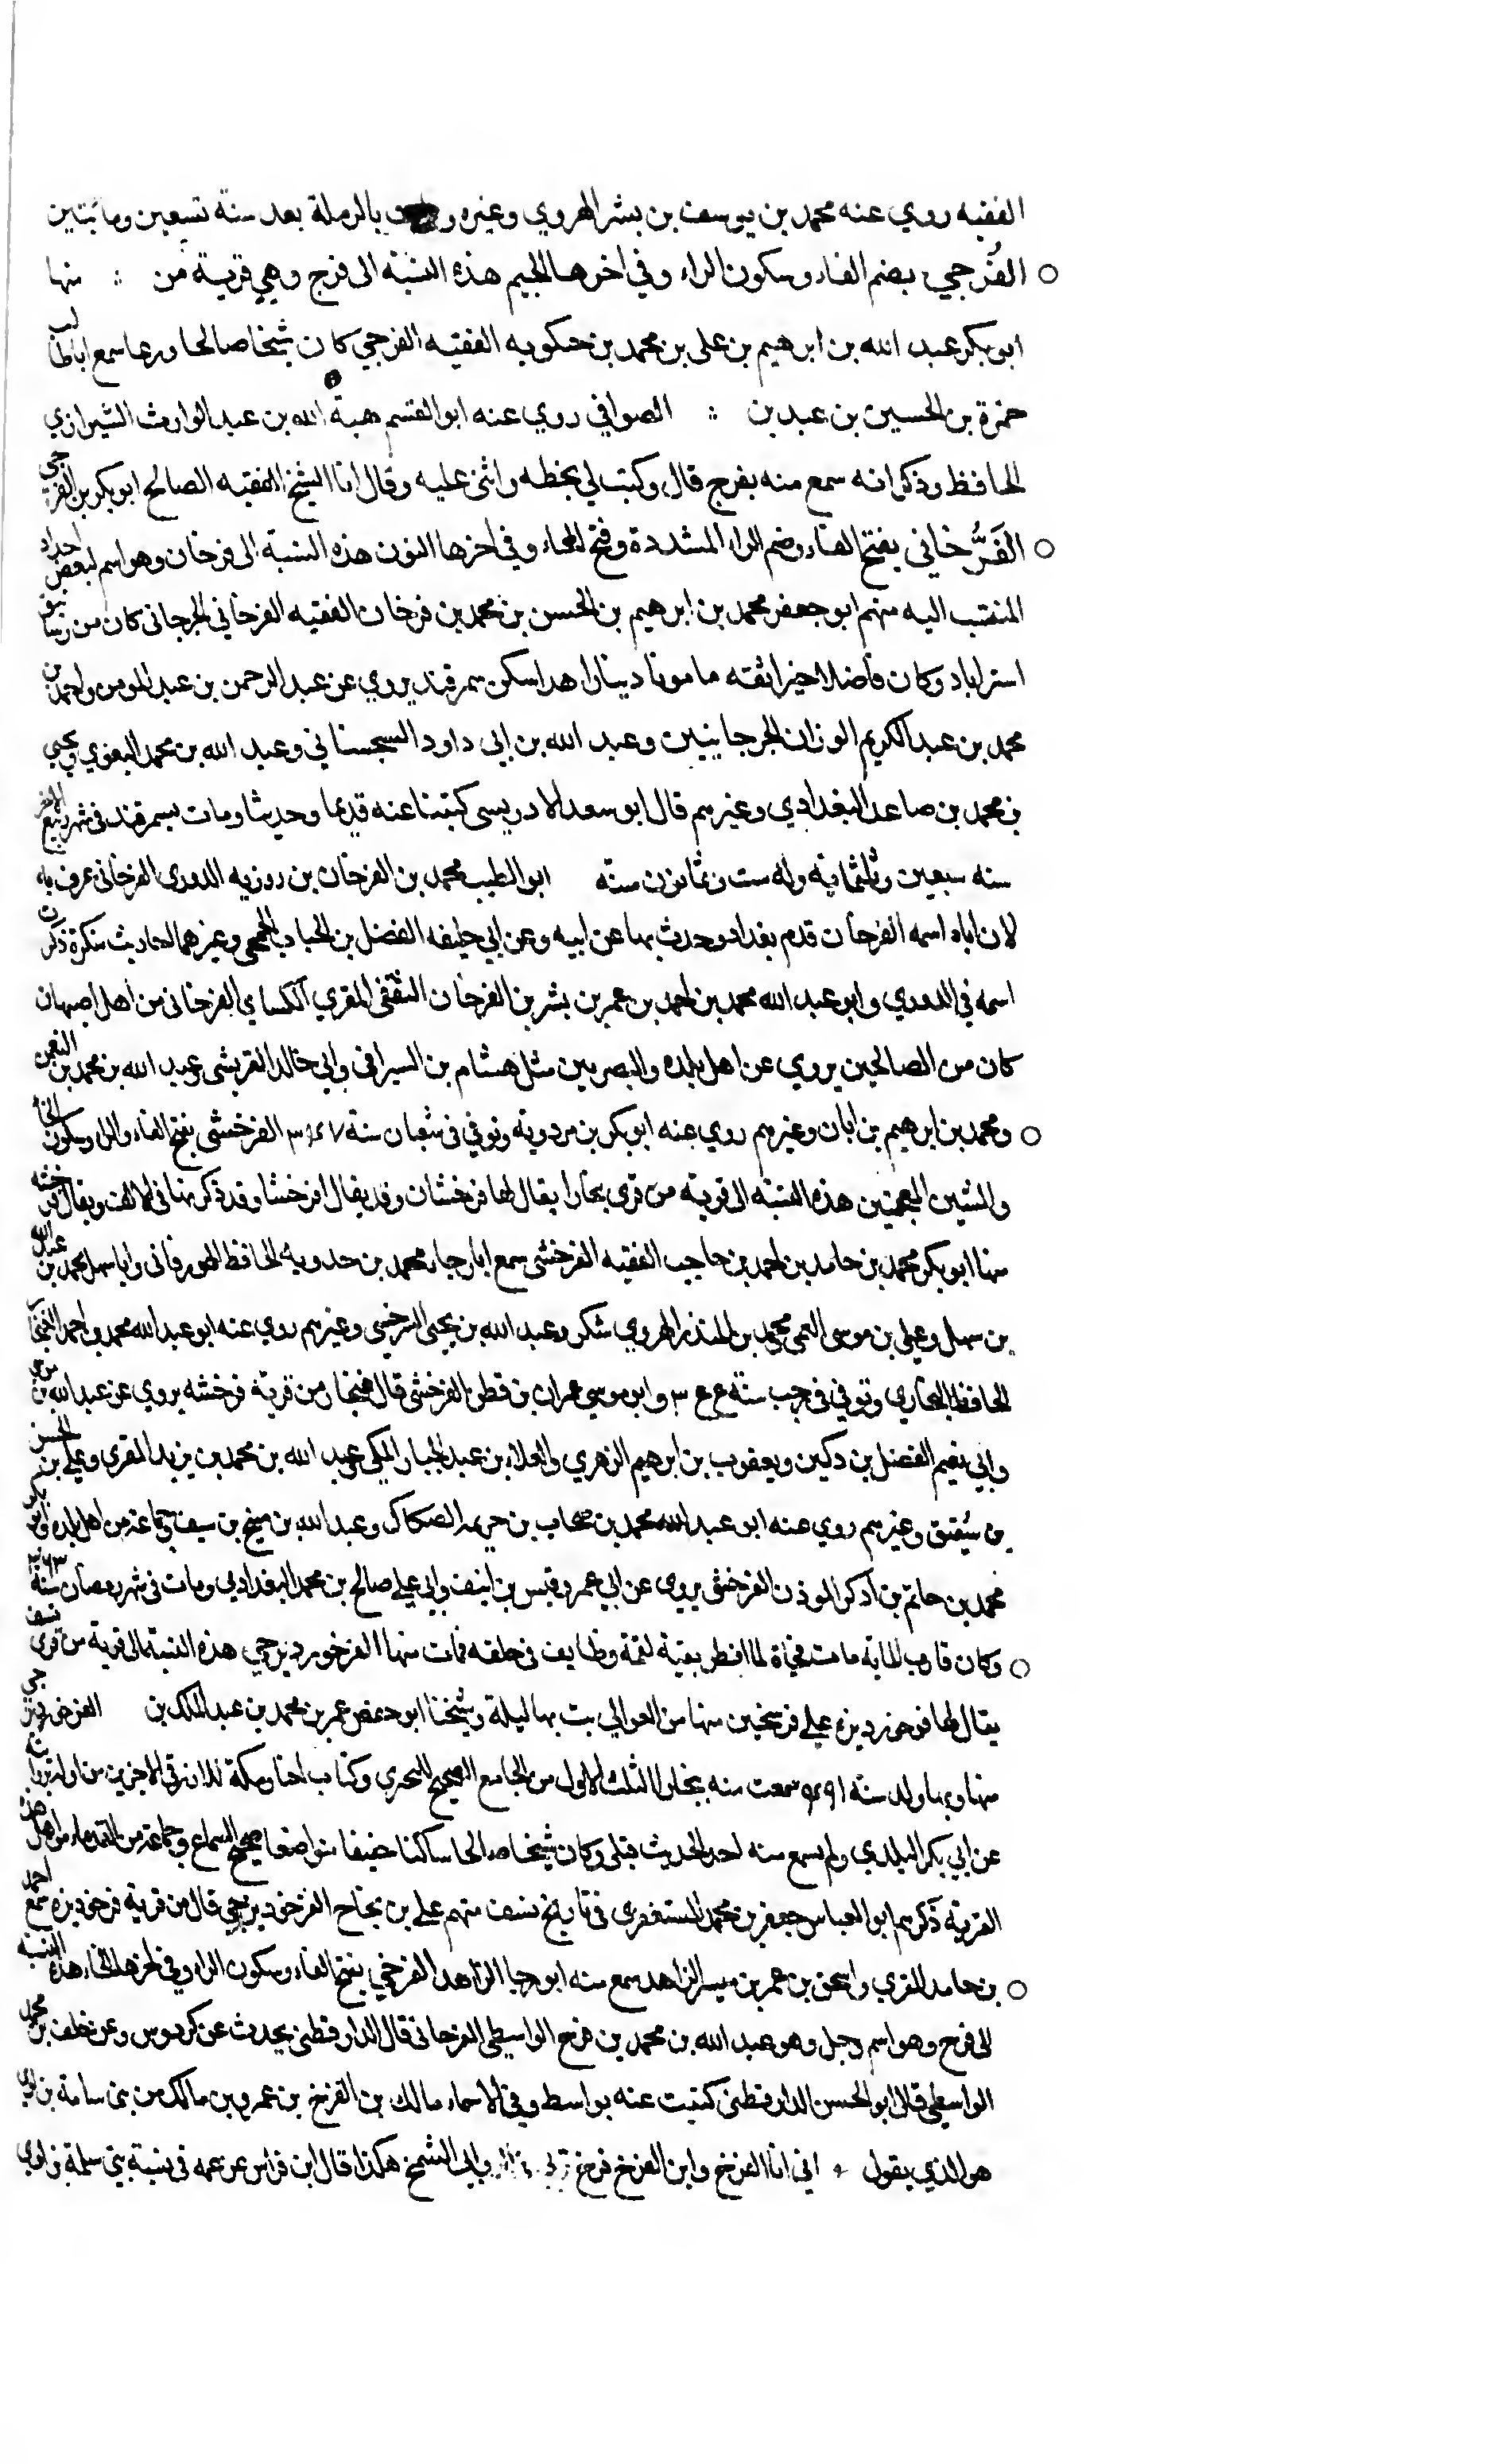 الفقيه روي عنه محمد بن يوسف بن بشر الهروي وغيره بالرملة بعد سنة تسعين ومائتين
الفُرجي بضم الفاء وسكون الراء وفي اخرها الجيم هذه النسبة الى فرج وهي قرية من منها
ابو بكر عبد الله بن ابرهيم بن علي بن محمد بن حنكويه الفقيه الفرجي كان شيخا صالحا ورعا سمع اباطالب
حمزة بن الحسين بن عبد بن الصوافي روي عنه ابو القسم هبة الله بن عبد الوارث الشيرازي
الحافظ وذكر انه سمع منه بفرج قال وكتب لي بخطه واثنى عليه وقال انا الشيخ الفقيه الصالح ابو بكر بن الفرجي
الفَرُّخاني بفتح الفاء وضم الراء المشددة وفتح الخاء وفي اخرها النون هذه النسبة الى فرخان وهو اسم لبعض اجداد
المنتسب اليه منهم ابو جعفر محمد بن ابرهيم بن الحسن بن محمد بن فرخان الفقيه الفرخاني الجرجاني كان من رساتيق
استراباد وكان فاضلا خيرا ثقة مامونا دينا زاهدا سكن سمرقند يروي عن عبد الرحمن بن عبد المومن واحمد بن
محمد بن عبد الكريم الوزان الجرجانيين وعبد الله بن ابي داود السجستاني وعبد الله بن محمد البغوي ويحيى
بن محمد بن صاعد البغدادي وغيرهم قال ابو سعد الادريسي كتبنا عنه قديما وحديثا ومات بسمرقند في شهر ربيع الاخر
سنه سبعين وثلثمايه وله ست وثمانون سنة ابو الطيب محمد بن الفرخان بن روزبه الدوري الفرخاني عرف به
لان اباه اسمه الفرخان قدم بغداد وحدث بها عن ابيه وعن ابي خليفه الفضل بن الحباب الجمحي وغيرهما احاديث منكرة ذكرت
اسمه في الدوري وابو عبد الله محمد بن احمد بن عمر بن بشر بن الفرخان الثقفي المقري الكساي الفرخاني من اهل اصبهان
كان من الصالحين يروي عن اهل بلده والبصريين مثل هشام بن السيرافي وابي خالد القريشي وعبد الله بن محمد بن النعمن
ومحمد بن ابرهيم بن ابان وغيرهم روي عنه ابو بكر بن مردويه وتوفي في شعبان سنة ٣٤٧ الفرخشي بفتح الفاء والراء وسكون الخاء
والشين المعجمتين هذه النسبة الى قرية من قرى بخارا يقال لها فرخشان وقد يقال افرخشا وقد ذكرنها في الالف ويقال فرخشه
منها ابو بكر محمد بن حامد بن احمد بن حاجب الفقيه الفرخشي سمع ابا رجاء محمد بن حدويه الحافظ الهورقاني وابا سهل محمد بن عبد الله
بن سهل وعلي بن موسى القمي ومحمد بن المنذر الهروي شكر وعبد الله بن يحيى السرخسي وغيرهم روي عنه ابو عبد الله محمد بن احمد الغنجار
الحافظ البخاري وتوفي في رجب سنة ٣٤٤ وابو موسي عمران بن قطن الفرخشي قال غنجار من قرية فرخشه يروي عن عبد الله بن موسى
وابي نعيم الفضل بن دكين ويعقوب بن ابرهيم الزهري والعلاء بن عبد الجبار المكي وعبد الله بن محمد بن يزيد المقري وعلي بن الحسن
بن شقيق وغيرهم روي عنه ابو عبد الله محمد بن صحاب بن خريمه الصكاك وعبد الله بن منيح بن سيف وجماعة من اهل بلده وابو بكر
محمد بن حاتم بن اذكر الموذن الفرخشي يروي عن ابي عمرو قيس بن انيف وابي علي صالح بن محمد البغدادي ومات في شهر رمضان سنة ٣٦٣
وكان قارب الماية مات فجاة لما افطر بقية لقمة وظايف في حلقه فمات منها الفرخورديزجي هذه النسبة الى قرية من قرى نسف
يقال لها فرخورديزه على فرسخين منها من العوالي بت بها ليلة وشيخنا ابو حفص عمر بن محمد بن عبد الملك بن الفرخورديزجي
منها وبها ولد سنة ٤٩١ سمعت منه ببخارا الثلث الاول من الجامع الصحيح للبحري وكتاب اخبار مكة للازرقي
عن ابي بكر البلدي ولم يسمع منه احد الحديث قبلي وكان شيخا صالحا ساكنا ضعيفا متواضعا صحيح السماع وجماعة من القدماء من اهل هذه
القرية ذكرهم ابو العباس جعفر بن محمد المستغفري في تاريخ نسف منهم علي بن نجاح الفرخورديزجي قال من قرية فرخورديزه سمع احمد
بن حامد المقري واسحق بن عمر بن ميسر الزاهد سمع منه ابو رجا الزاهد الفرخي بفتح الفاء وسكون الراء وفي اخرها الخاء هذه النسبة
الى فرخ وهو اسم رجل وهو عبد الله بن محمد بن فرخ الواسطي الفرخاني قال الدارقطني يحدث عن كردوس وعن خلف بن محمد
الواسطي قال ابو الحسن الدارقطني كتبت عنه بواسط وفي الاسماء مالك بن الفرخ بن عمرو بن مالك من بني سامة بن لوي
هو الذي يقول اني انا الفرخ وابن الفرخ فرخ وابي الشمخ هكذا قال ابن فراس عن عمه في نسبة بني سلمة بن لوي